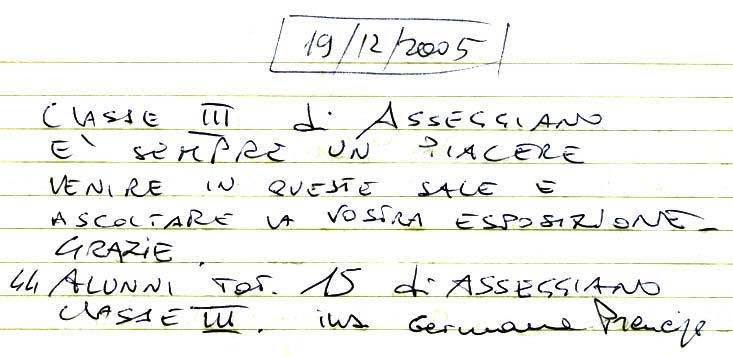 19/12/2005
CLASSE III di ASSEGGIANO
E' SEMPRE UN PIACERE
VENIRE IN QUESTE SALE E
ASCOLTARE LA VOSTRA ESPOSIZIONE
GRAZIE.
ALUNNI TOT. 15 di ASSEGGIANO
CLASSE III. ins Germana